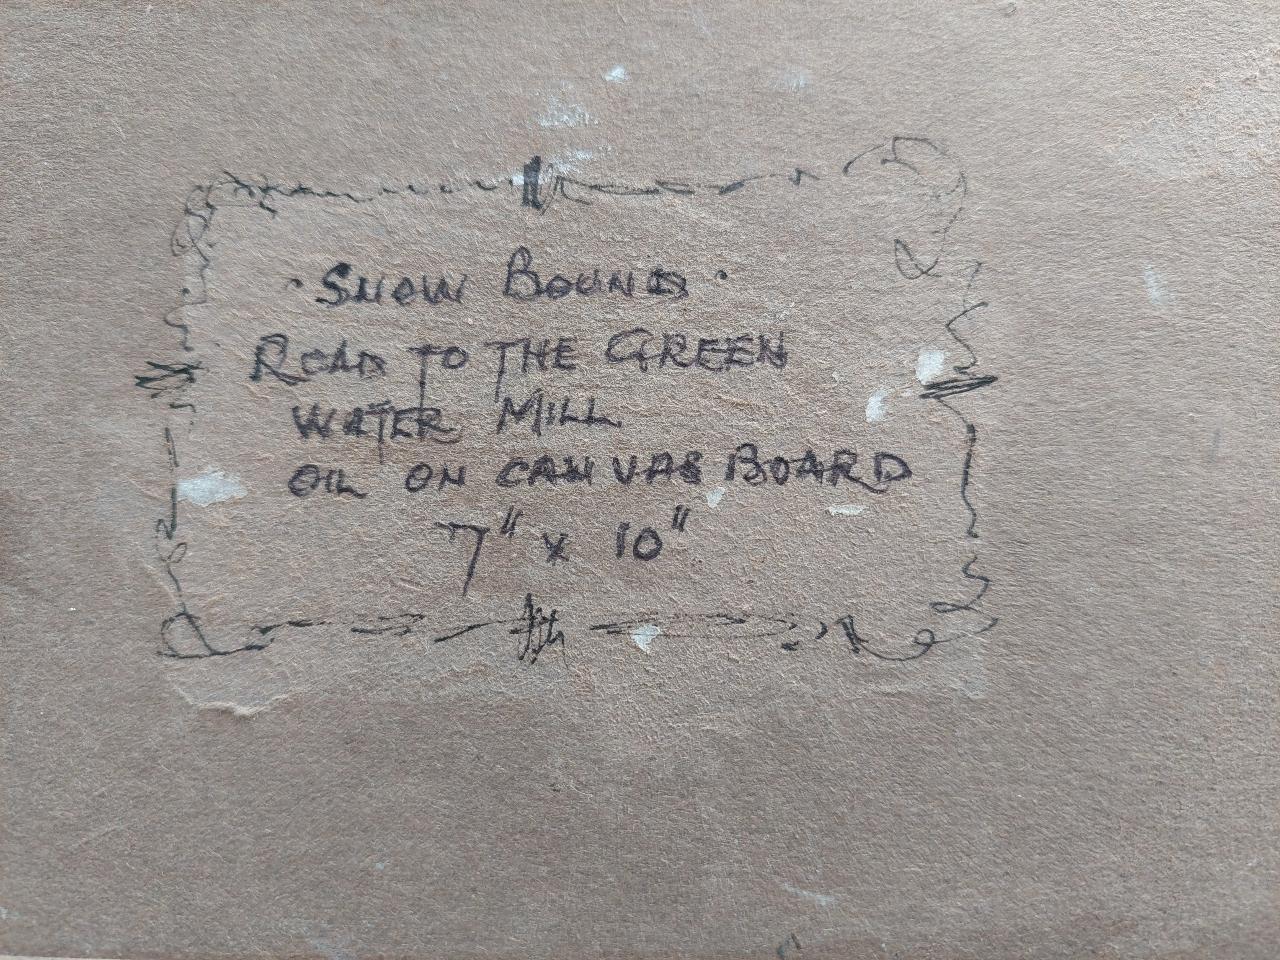 · SNOW BOUND ·
ROAD TO THE GREEN
WATER MILL
OIL ON CANVAS BOARD
7" x 10"